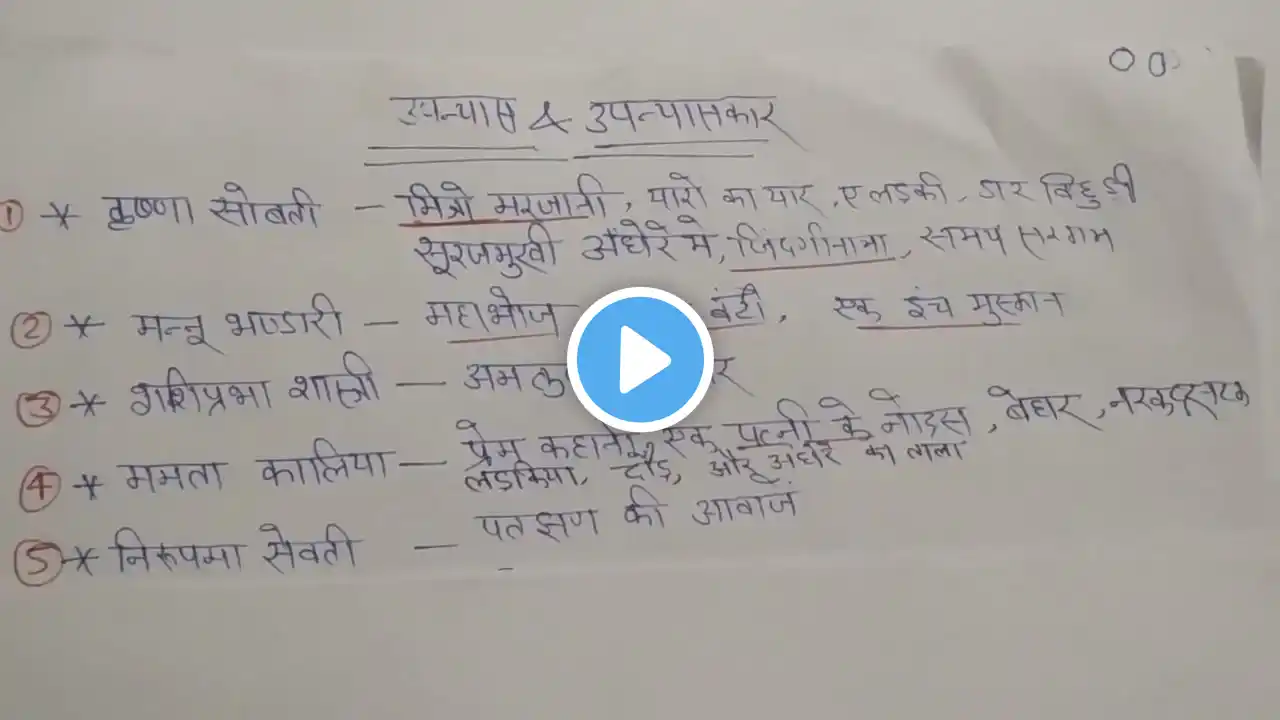 उपन्यास & उपन्यासकार
① * कृष्णा सोबती – मित्रो मरजानी, यारो का यार, ए लडकी, डार बिछुडी
सूरजमुखी अंधेरे मे, जिंदगीनामा, समय सरगम
② * मन्नू भण्डारी – महाभोज बंटी, एक इंच मुस्कान
③ * शशिप्रभा शास्त्री –
④ * ममता कालिया – प्रेम कहानी, एक पत्नी के नोट्स, बेघर, नरक दर नरक
लडकिया, दौड़, और अंधेरे का ताला
⑤ * निरुपमा सेवती – पतझण की आवाजं